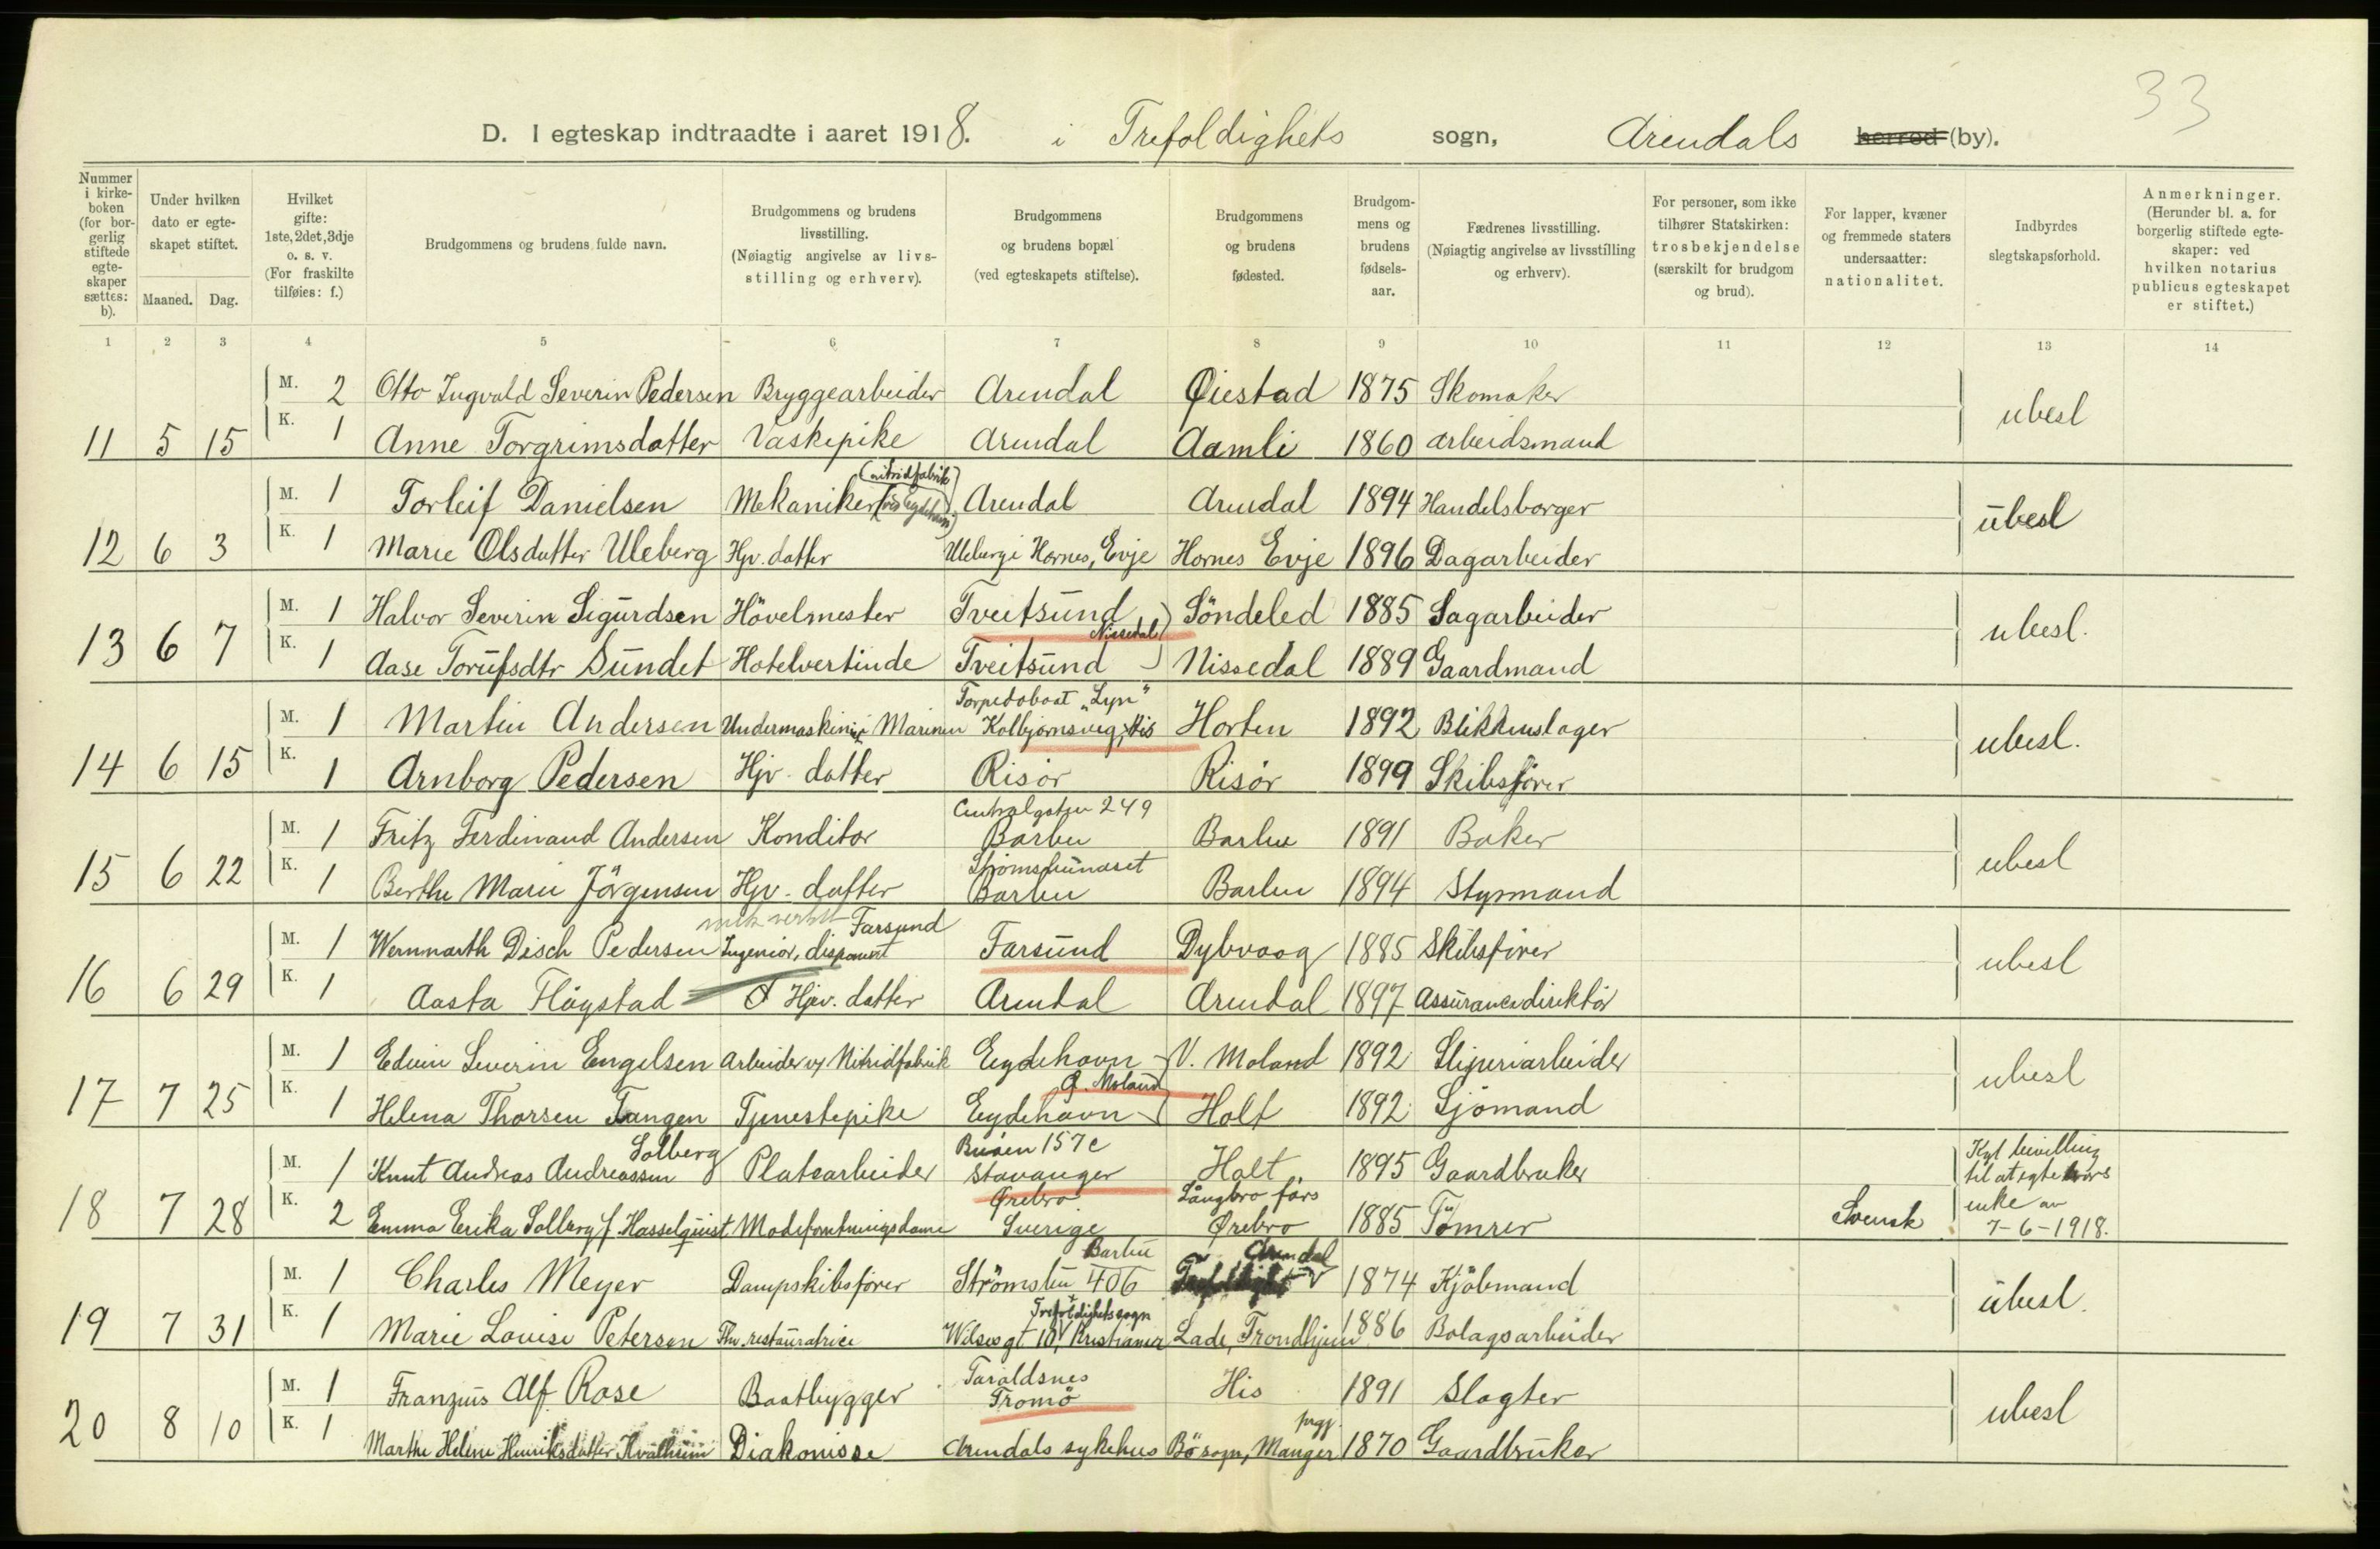 33
D. I egteskap indtraadte i aaret 1918. i Trefoldighets sogn, Arendals herred (by).
Nummer i kirke-boken (for bor-gerlig stiftede egte-skaper sættes: b).
Under hvilken dato er egte-skapet stiftet.
Maaned. Dag.
Hvilket gifte: 1ste, 2det, 3dje o. s. v. (For fraskilte tilføies: f.)
Brudgommens og brudens fulde navn.
Brudgommens og brudens livsstilling. (Nøiagtig angivelse av livs-stilling og erhverv).
Brudgommens og brudens bopæl (ved egteskapets stiftelse).
Brudgommens og brudens fødested.
Brudgom-mens og brudens fødsels-aar.
Fædrenes livsstilling. (Nøiagtig angivelse av livsstilling og erhverv).
For personer, som ikke tilhører Statskirken: trosbekjendelse (særskilt for brudgom og brud).
For lapper, kvæner og fremmede staters undersaatter: nationalitet.
Indbyrdes slegtskapsforhold.
Anmerkninger. (Herunder bl. a. for borgerlig stiftede egte-skaper: ved hvilken notarius publicus egteskapet er stiftet.)
1 2 3 4 5 6 7 8 9 10 11 12 13 14
M. 2 Otto Ingvald Severin Pedersen Bryggearbeider Arendal Øiestad 1875 Skomaker
11 5 15 K. 1 Anne Torgrimsdatter Vaskepike Arendal Aamli 1860 Arbeidsmand ubesl
(nitridfabrik
M. 1 Torleif Danielsen Mekaniker Arendal Arendal 1894 Handelsborger
12 6 3 K. 1 Marie Olsdatter Uleberg Hjv. datter Uleberg i Hornes, Evje Hornes Evje 1896 Dagarbeider ubesl
M. 1 Halvor Severin Sigurdsen Hövelmester Tveitsund Söndeled 1885 Sagarbeider
Nissedal
13 6 7 K. 1 Aase Torufsdtr Sundet Hotelvertinde Tveitsund Nissedal 1889 Gaardmand ubesl.
Torpedobaat "Lyn"
M. 1 Martin Andersen Undermaskinist Marinen Kolbjørnsvig, His Horten 1892 Blikkenslager
14 6 15 K. 1 Arnborg Pedersen Hjv. datter Risør Risör 1899 Skibsfører ubesl.
Centralgaten 249
M. 1 Fritz Ferdinand Andersen Konditor Barbu Barbu 1891 Baker
Strömsbunæset
15 6 22 K. 1 Berthe Marie Jörgensen Hjv. datter Barbu Barbu 1894 Styrmand ubesl
mek verkst Farsund
M. 1 Wernnarth Disch Pedersen Ingeniör, disponent Farsund Dybvaag 1885 Skibsfører
16 6 29 K. 1 Aasta Flögstad Hjv. datter Arendal Arendal 1897 Assurancedirektör ubesl
M. 1 Edvin Severin Engelsen Arbeider v/ Nitridfabrik Eydehavn V. Moland 1892 Sliperiarbeider
Ø. Moland
17 7 25 K. 1 Helena Thorsen Tangen Tjenestepike Eydehavn Holt 1892 Sjömand ubesl
Solberg Buöen 157c
M. 1 Knut Andreas Andreassen Platearbeider Stavanger Holt 1895 Gaardbruker
Kgl bevilling
til at egte brors
enke av
7-6-1918.
Ørebro Långbro förs
18 7 28 K. 2 Emma Erika Solberg f. Hasselquist Modeforretningsdame Sverige Ørebro 1885 Tömrer Svensk
Barbu Arendal
M. 1 Charles Meyer Dampskibsfører Strömsbu 406 1874 Kjöbmand
Trefoldighetssogn
19 7 31 K. 1 Marie Louise Petersen Fhv. restauratrice Wilsesgt 10, Kristiania Lade, Trondhjem 1886 Bolagsarbeider ubesl.
Taraldsnes
M. 1 Franzius Alf. Rose Baatbygger Tromö His 1891 Slagter
prgj.
20 8 10 K. 1 Marthe Helene Henriksdatter Kvalheim Diakonisse Arendals sykehus Bö sogn, Manger 1870 Gaardbruker ubesl